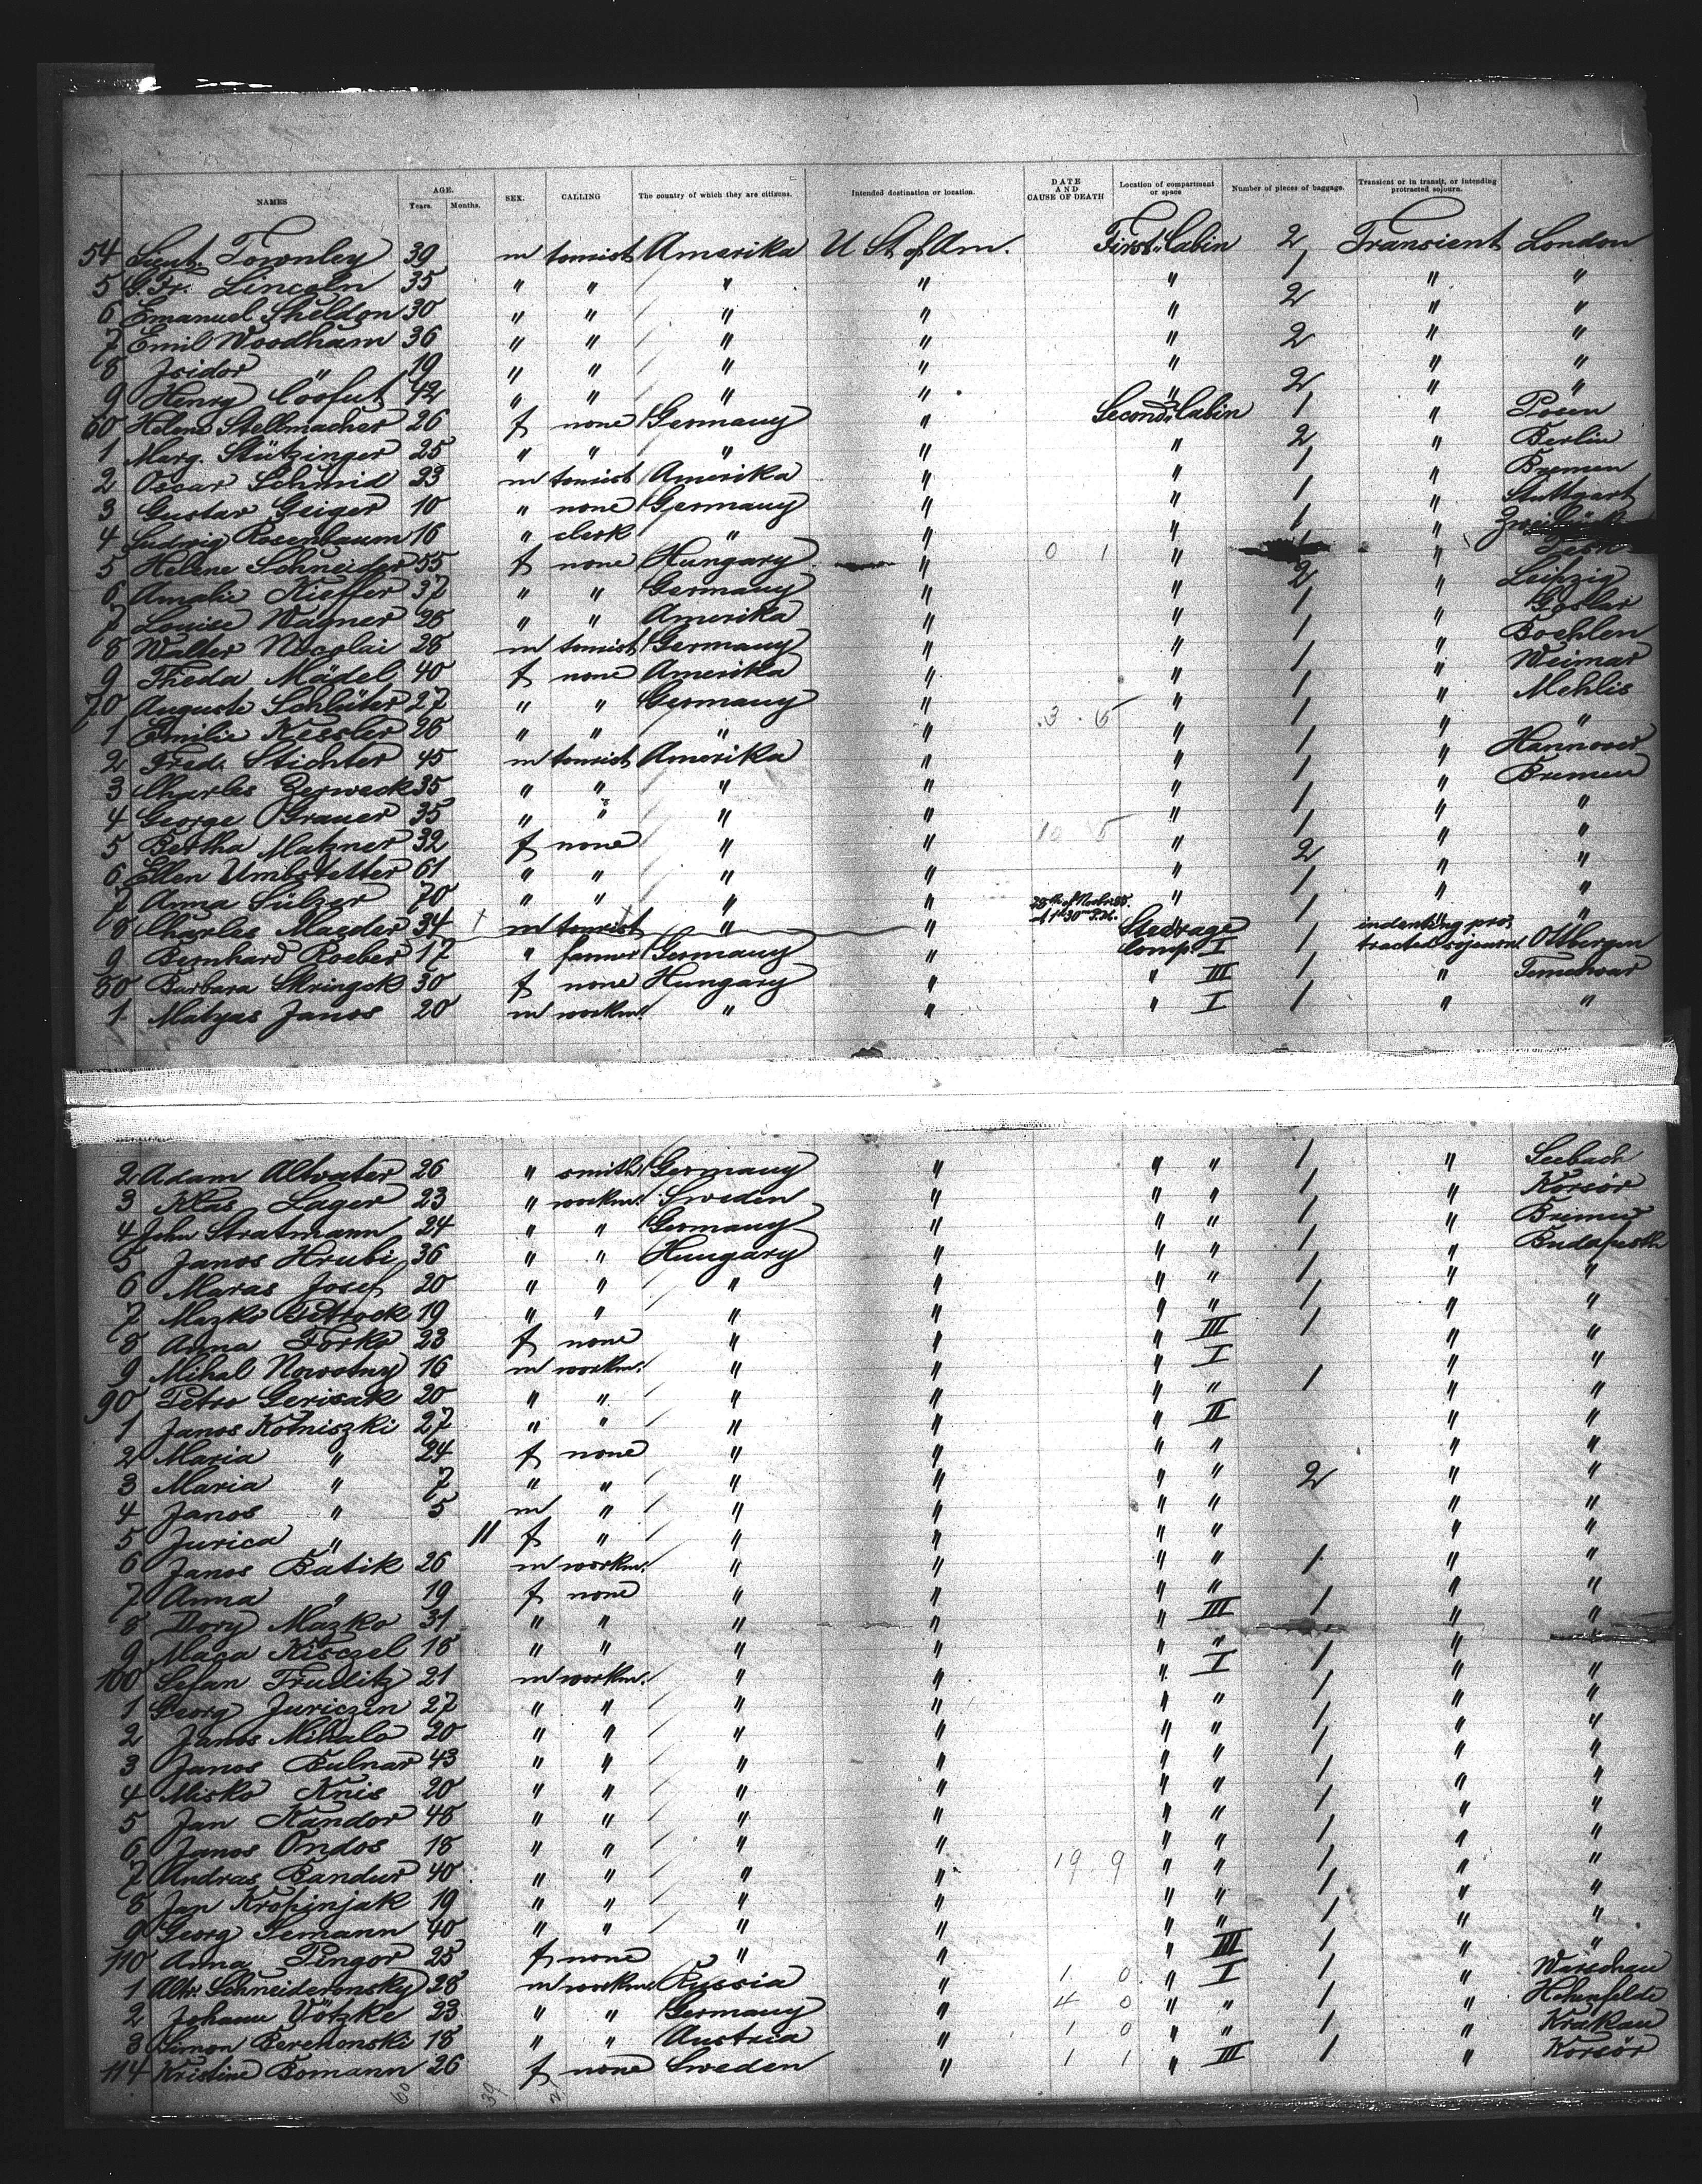 NAMES AGE. Years. Months. SEX. CALLING The country of which they are citizens. Intended destination or location. DATE AND CAUSE OF DEATH Location of compartment or space Number of pieces of baggage. Transient or in transit, or intending protracted sojourn.
54 Lieut. Townley 39 m tourist Amerika U St of Am. First Cabin 2 Transient London
5 Lincoln 35 " " " " " 1 " "
6 Emanuel Sheldon 30 " " " " " 2 " "
7 Emil Woodham 36 " " " " " 2 " "
8 Isidor " 19 " " " " " " "
9 Henry 42 " " " " " 2 " "
60 Helene Stellmacher 26 f none Germany " Second Cabin 1 " Posen
1 Marg. Stützinger 25 " " " " " 2 " Berlin
2 Oscar Schmid 23 m tourist Amerika " " 1 " Bremen
3 Gustav Geiger 10 " none Germany " " 1 " Stuttgart
4 Ludwig Rosenbaum 16 " clerk " " " 1 "
5 Helene Schneider 55 f none Hungary " 0 1 " "
6 Amalie Kieffer 37 " " Germany " " 2 " Leipzig
7 Louise Wagner 26 " " Amerika " " 1 " Goslar
8 Walter Nicolai 28 m tourist Germany " " 1 " Boehlen
9 Theda Mädel 40 f none Amerika " " 1 " Weimar
70 Auguste Schlüter 27 " " Germany " " 1 " Mehlis
1 Emilie Kessler 26 " " " " 3 5 " 1 " "
2 Fred. Stichter 45 m tourist Amerika " " 1 " Hannover
3 Charles Zerweck 35 " " " " " 1 " Bremen
4 George Grauer 35 " " " " " 1 " "
5 Bertha Matzner 32 f none " " 10 5 " 1 " "
6 Ellen Umbstetter 61 " " " " " 2 " "
7 Anna Sülzer 70 " " " " " 1 " "
8 Charles Maeder 34 m tourist " " 1 " "
9 Bernhard Roeber 17 " farmer Germany " Steerage Comp. I 1 indenting protracted sojourn. Ottbergen
80 Barbara Skringek 30 f none Hungary " " III 1 " Temeswar
1 Matyas Janos 20 m workm. " " " I 1 " "
2 Adam Altvater 26 " smith Germany " " " 1 " Seebach
3 Klas Lager 23 " workm. Sweden " " " 1 " Korsör
4 John Stratmann 24 " " Germany " " " 1 " Bremen
5 Janos Hrubi 36 " " Hungary " " " 1 " Budapesth
6 Maras Josef 20 " " " " " " 1 " "
7 Mazko Bettrock 19 " " " " " " 1 " "
8 Anna Forko 23 f none " " " III 1 " "
9 Mihal Nowotny 16 m workm. " " " I " "
90 Petro Gerisak 20 " " " " " " 1 " "
1 Janos Kotniszki 27 " " " " " II " "
2 Maria " 24 f none " " " " " "
3 Maria " 7 " " " " " " 2 " "
4 Janos " 5 m " " " " " " "
5 Jurica " 11 f " " " " " " "
6 Janos Batik 26 m workm. " " " " 1 " "
7 Anna " 19 f none " " " " " "
8 Dory Mazko 31 " " " " " III 1 " "
9 Maca Kisczel 18 " " " " " " " "
100 Sefan Trudlitz 21 m workm. " " " I 1 " "
1 Georg Juriczin 27 " " " " " " 1 " "
2 Janos Mihalo 20 " " " " " " 1 " "
3 Janos Bulnar 43 " " " " " " 1 " "
4 Misko Knis 20 " " " " " " 1 " "
5 Jan Kandor 48 " " " " " " 1 " "
6 Janos Ondos 18 " " " " " " 1 " "
7 Andras Bandur 40 " " " " 19 9 " " 1 " "
8 Jan Kropinjak 19 " " " " " " 1 " "
9 Georg Semann 40 " " " " " " 1 " "
110 Anna Pingor 25 f none " " " III 1 " "
1 Schneideronsky 28 m workm. Russia " 1 0 " I 1 " Warschau
2 Johann Völzke 23 " " Germany " 4 0 " " 1 " Hohenfelde
3 Simon Berekonski 18 " " Austria " 1 0 " " 1 " Krakau
114 Kristine Bomann 26 f none Sweden " 1 1 " III 1 " Korsör
60 39 21